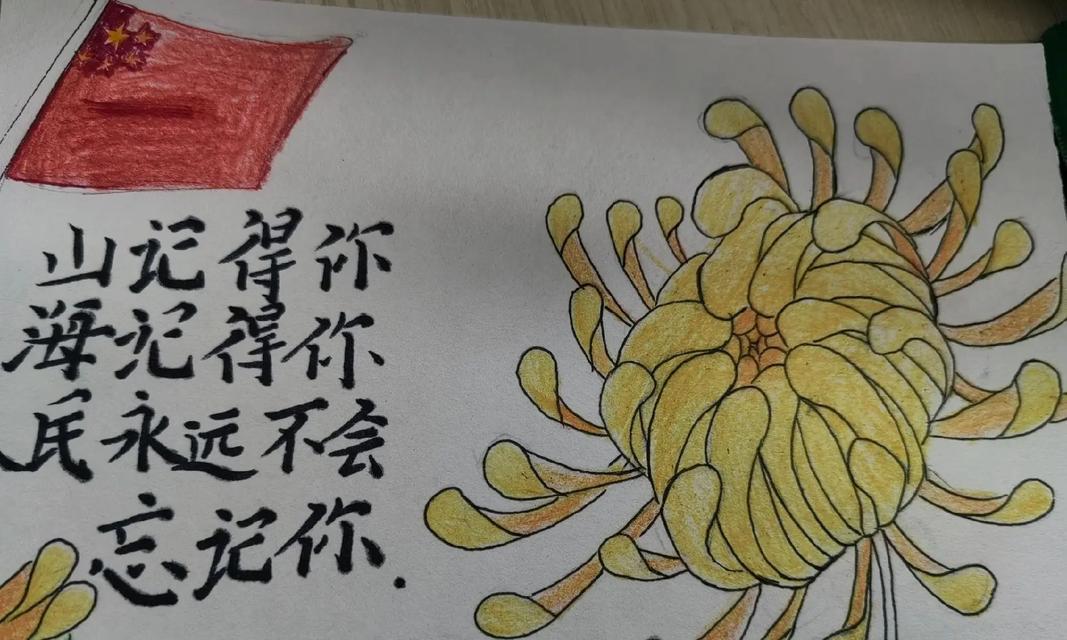 山记得你
海记得你
民永远不会
忘记你.